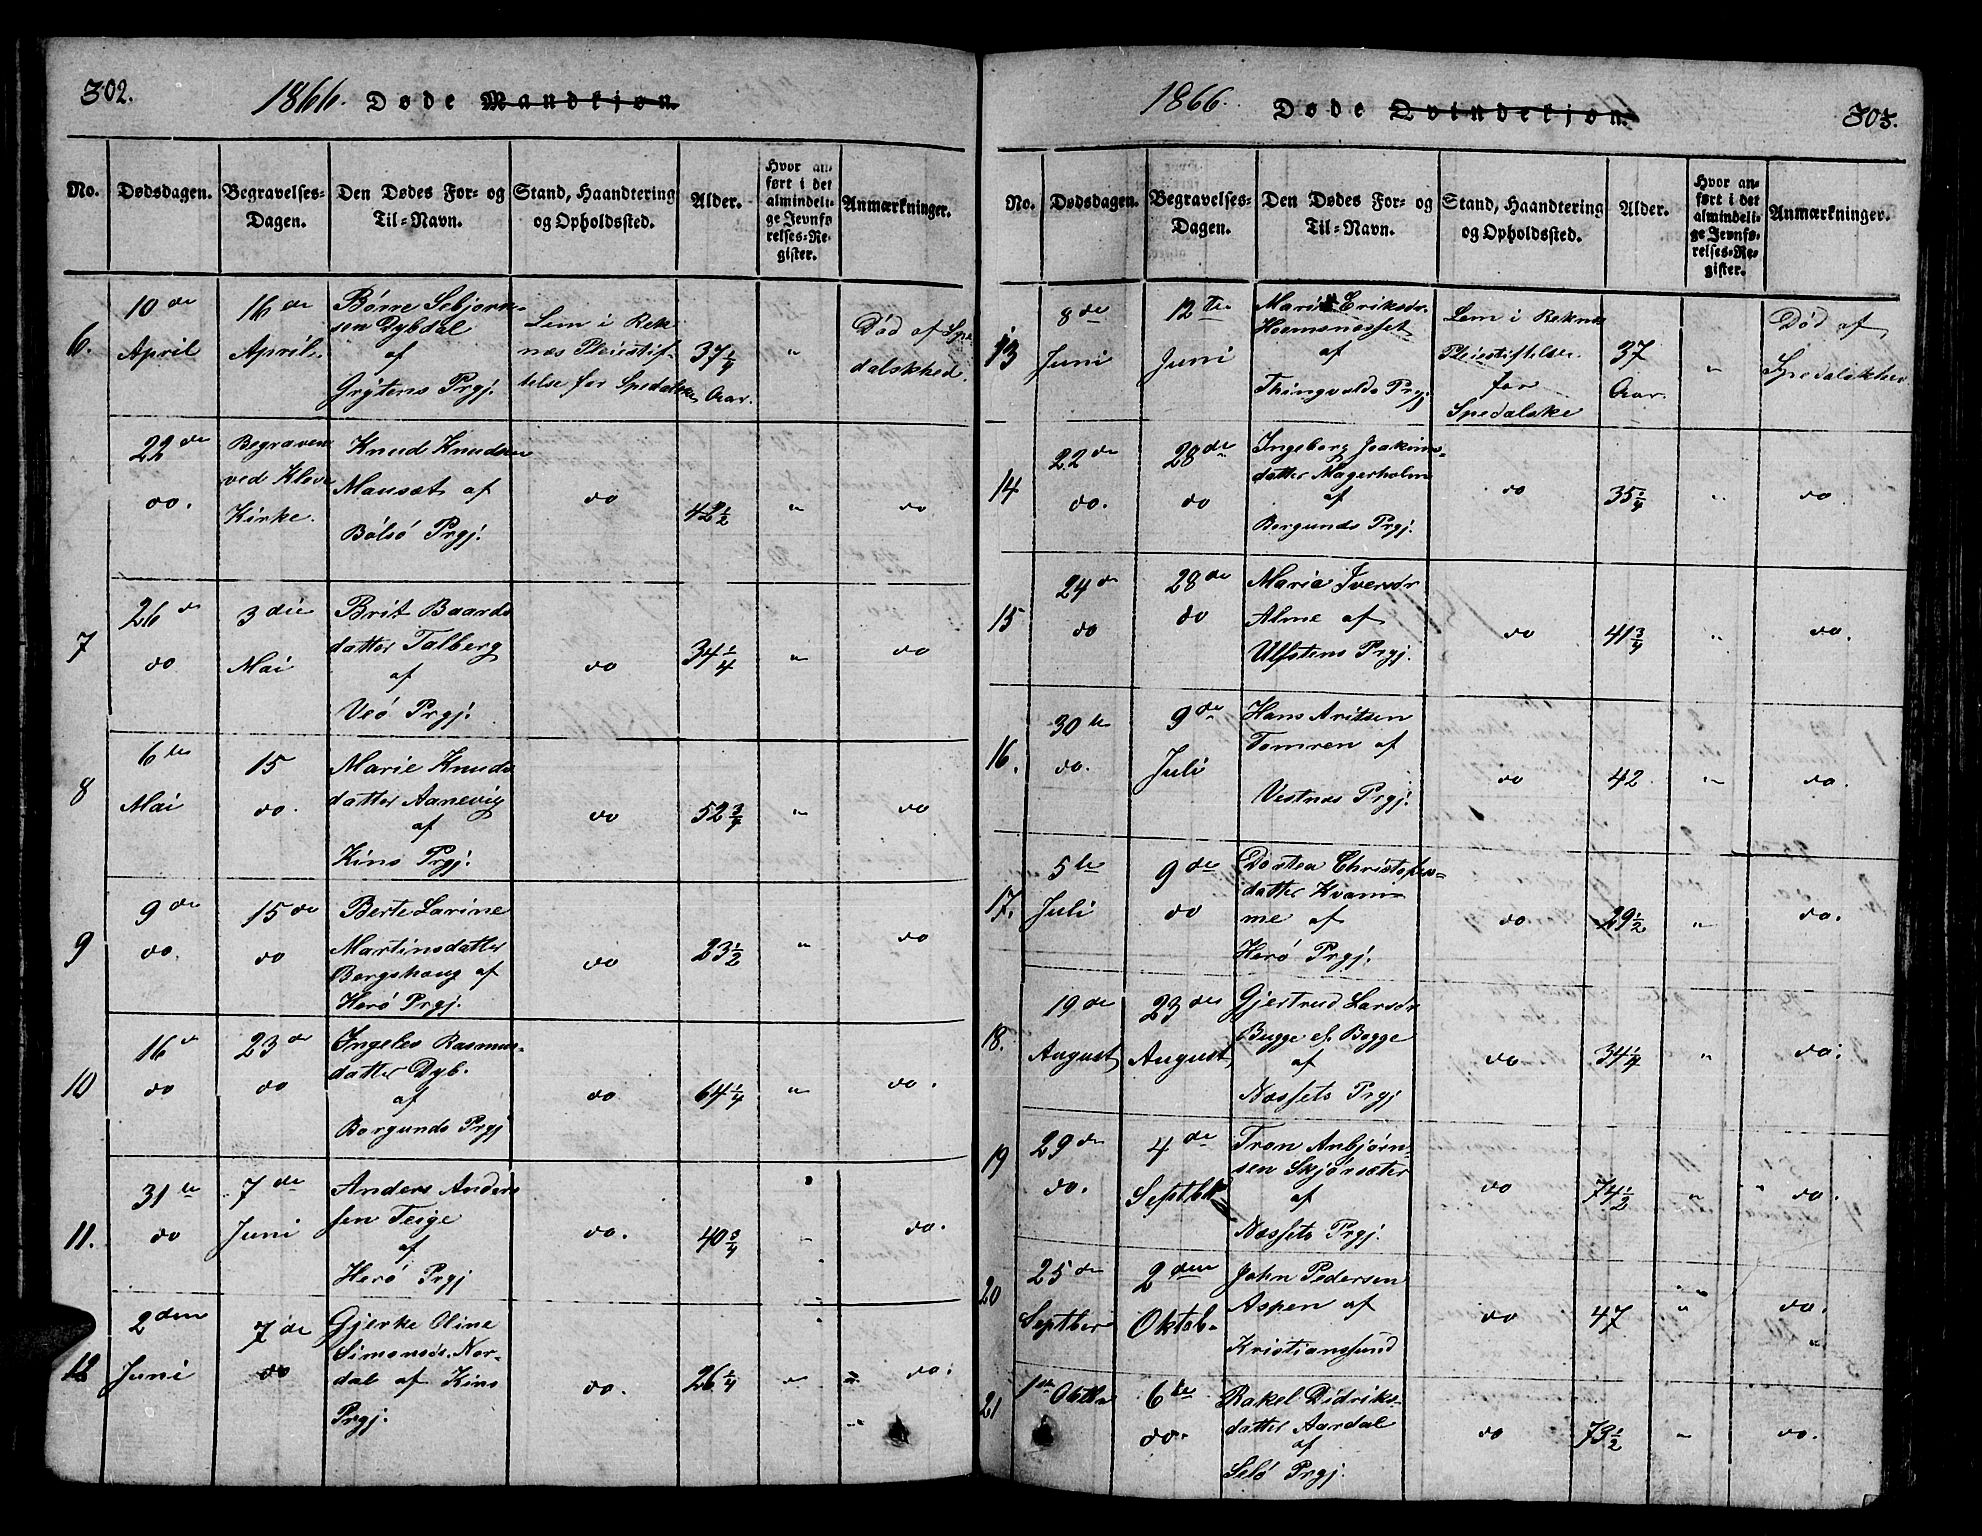 302.
1866. Døde Mandkjøn.
No. Dødsdagen. Begravelses-Dagen. Den Dødes For- og Til-Navn. Stand, Haandtering og Opholdssted. Alder. Hvor anført i det almindelige Jevnførelses-Register. Anmærkninger.
6. 10de April 16de April.
Børre Sebjørn-
sen Dybdal
af
Grytens Prgj.
Lem i Rek-
næs Pleiestif-
telse for Spedalske
37 1/4 Aar. "
Død af Spe-
dalskhed.
22de do.
Begraven
ved Kleve
Kirke.
Knud Knudsen
Mausæt af
Bolsø Prgj.
do 42 1/2 " do
7 26de do 3die Mai
Brit Baards
datter Talberg
af
Veø Prgj.
do 34 1/4 " do
8 6te Mai 15 do.
Marie Knuds
datter Aanevig
af
Kins Prgj.
do 52 3/4 " do
9 9de do. 15de do
Berte Larine
Martinsdatter
Bergshaug af
Herø Prgj.
do 23 1/2 " do
10 16de do 23de do
Ingeles Rasmus-
datter Dyb.
af
Borgunds Prgj
do 64 1/4 " do.
11. 31te do 7de Juni
Anders Anders
sen Teige
af
Herø Prgj
do. 40 3/4 " do.
12 2den Juni 7de do
Gjerke Oline
Simonsdr. Nor-
dal af Kins
Prgj.
do. 26 1/4 " do.
1866. Døde Qvindekjøn.
303.
No. Dødsdagen. Begravelses-Dagen. Den Dødes For- og Til-Navn. Stand, Haandtering og Opholdssted. Alder. Hvor anført i det almindelige Jevnførelses-Register. Anmærkninger.
13 8de Juni 12te Juni
Marit Eriksdr.
Hoemsnæsset
af
Thingvolds Prgj
Lem i Reknæs
Pleiestiftelse
for
Spedalske
37 Aar. "
Død af
Spedalskhed
14 22de do. 28de do
Ingeborg Joakims-
datter Magerholm
af
Borgunds Prgj.
do 35 1/4 " do
15 24de do 28de do
Maria Iversdr
Alme af
Ulfstens Prgj.
do 41 3/4 " do.
16. 30te do. 9de Juli
Hans Aritsen
Tomren af
Vestnæs Prgj.
do 42 " do.
17. 5te Juli 9de do
Dortea Christophers-
datter Kvam-
me af
Herø Prgj.
do 29 1/2 " do.
18. 19de August 23de August
Gjertrud Larsdr
Bugge el. Bogge
af
Næssets Prgj
do 34 1/4 " do.
19 29de do. 4de Septbr
Tron Anbjørn-
sen Skjørsæter
af
Næssets Prgj.
do 74 1/2 " do.
20 25de Septber 2den Oktob.
John Pedersen
Aspen af
Kristianssund
do 47 " do.
21 1ste Oktbr 6te do.
Rakel Didriks-
datter Aardal
af
Selø Prgj.
do 73 1/2 " do.